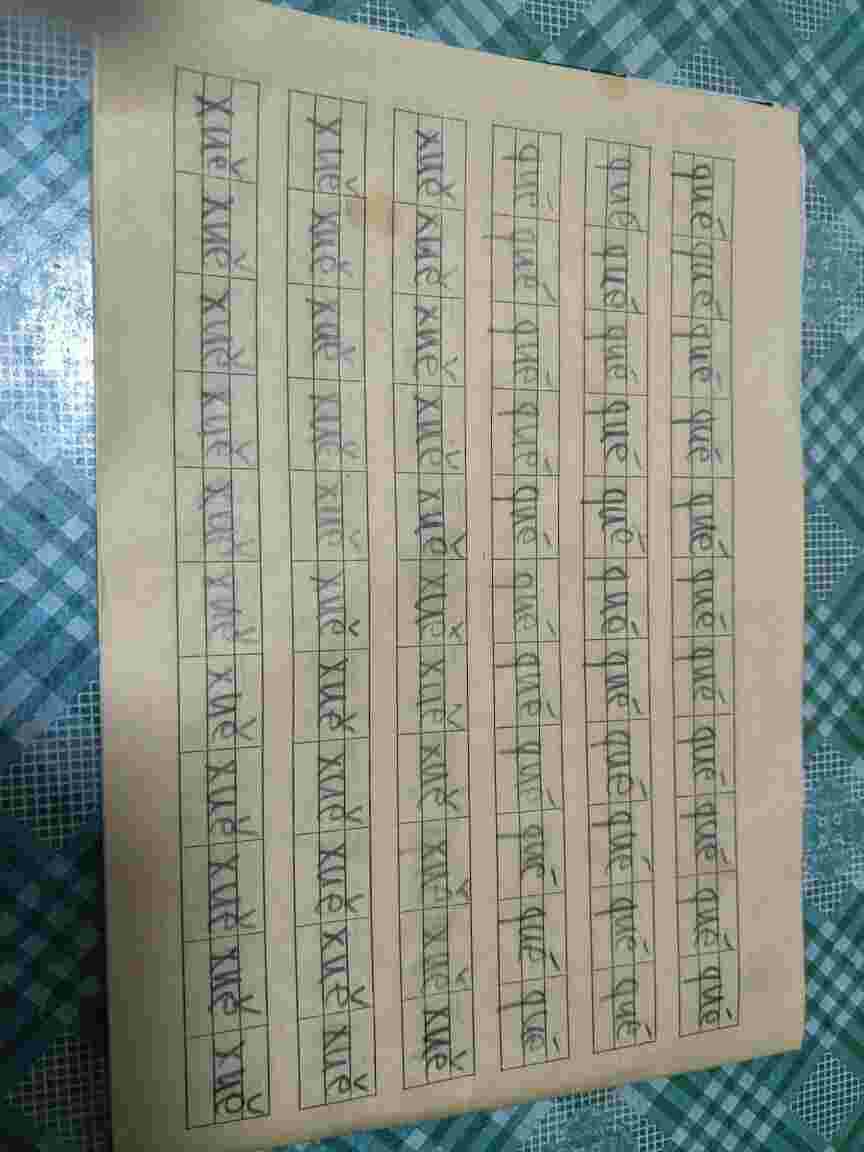 qué qué qué qué qué qué qué qué qué qué qué
qué qué qué qué qué qué qué qué qué qué qué
qué qué qué qué qué qué qué qué qué qué qué
xuě xuě xuě xuě xuě xuě xuě xuě xuě xuě xuě
xuě xuě xuě xuě xuě xuě xuě xuě xuě xuě xuě
xuě xuě xuě xuě xuě xuě xuě xuě xuě xuě xuě